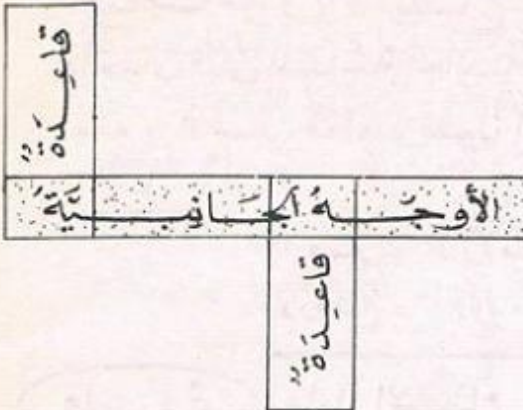 قَاعِدَةٌ
الأَوجُهُ الجَانِبِيَّةُ
قَاعِدَةٌ